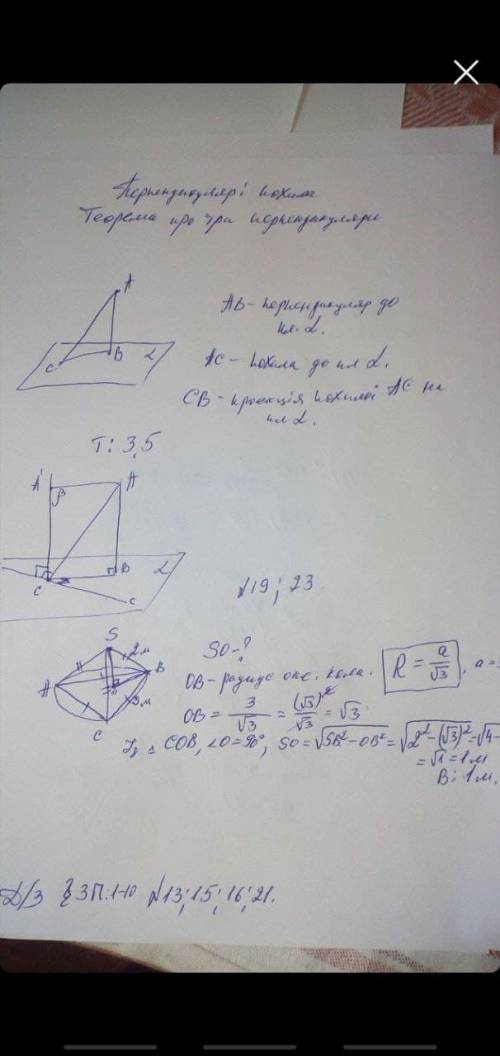 Перпендикуляр і похила
Теорема про три перпендикуляри
A
B
C
α
AB – перпендикуляр до
пл. α.
AC – похила до пл α.
CB – проекція похилої AC на
пл α.
Т: 3,5
A'
A
β
B
α
C
c
№19; 23
S
2м
A
B
3м
C
SO-?
OB – радіус опс. кола.
R = a/√3
, a=
OB = 3/√3 = (√3)²/√3 = √3
Із △ COB, ∠O=90°, SO=√(SB²-OB²)=√(2²-(√3)²)=√4-
=√1=1м
В: 1м.
Д/З § 3 П.1-10 №13; 15; 16; 21.